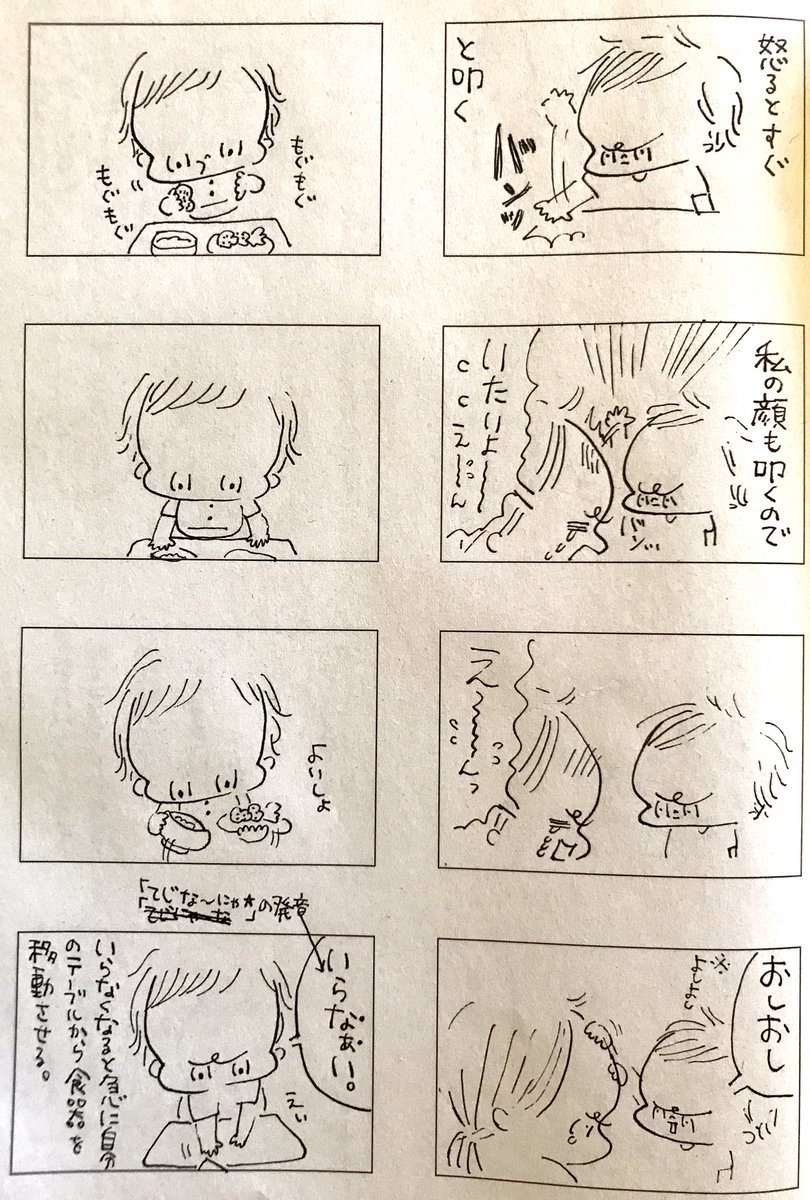 怒るとすぐ
バンッ
と叩く
私の顔も叩くので
バンッ
いたいよ〜〜
え〜〜んっ
おしおし
※よしよし
もぐもぐ
もぐもぐ
よいしょ
「てじな〜にゃ☆」の発音
いらなぁい。
えい
いらなくなると急に自分
のテーブルから食器を
移動させる。